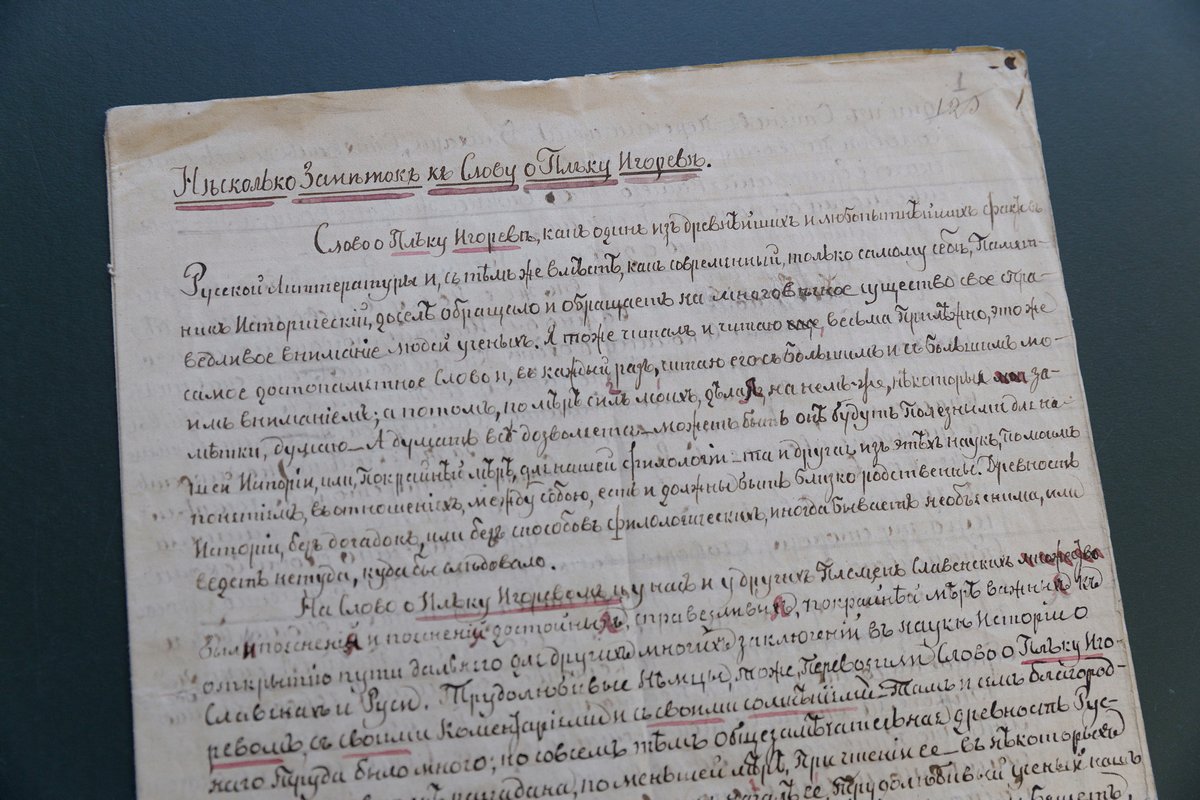 1
125
1
Нѣсколько Замѣтокъ къ Слову о Плъку Игоревѣ.
Слово о Плъку Игоревѣ, какъ одинъ изъ древнѣйшихъ и любопытнѣйшихъ фактовъ
Русской Литтературы и, съ тѣмъ же вмѣстѣ, какъ современный, только самому себѣ, Памят-
никъ Историческій, доселѣ обращало и обращаетъ на многовѣчное существо свое спра-
ведливое вниманіе людей ученыхъ. Я тоже читалъ и читаю, весьма прилѣжно, это же
самое достопамятное Слово и, въ каждый разъ, читаю его съ большимъ и съ большимъ мо-
имъ вниманіемъ; а потомъ, по мѣрѣ силъ моихъ, дѣлая, на немъ-же, нѣкоторыя за-
мѣтки, думаю – А думать всё дозволяется – можетъ быть онѣ будутъ полезными для на-
шей Исторіи, или, покрайнѣй мѣрѣ, для нашей филологіи – та и другая изъ этѣхъ наукъ, по моимъ
понятіямъ, въ отношеніяхъ, между собою, есть и должны быть близко родственны. Древность
Исторіи, безъ догадокъ, или безъ способовъ филологическихъ, иногда бываетъ необъяснима, или
ведетъ нетуда, куда бы слѣдовало.
На Слово о Плъку Игоревомъ, у насъ и у другихъ Племенъ Славенскихъ
были поясненія и пояснения достойныя, справедливыя, покрайнѣй мѣрѣ важныя къ
открытію пути дальняго для другихъ многихъ заключеній въ наукѣ Исторіи о
Славянахъ и Руси. Трудолюбивые Нѣмцы, тоже, переводили Слово о Плъку Иго-
ревомъ, съ своими Коментаріями и съ своими сомнѣніями – Тамъ и семъ благород-
наго труда было много; но совсемъ тѣмъ общезамѣчательная древность Рус-
по меньшей мѣрѣ, при чтеніи ее – въ нѣкоторыхъ
ее. Трудолюбивый ученыхъ нашъ